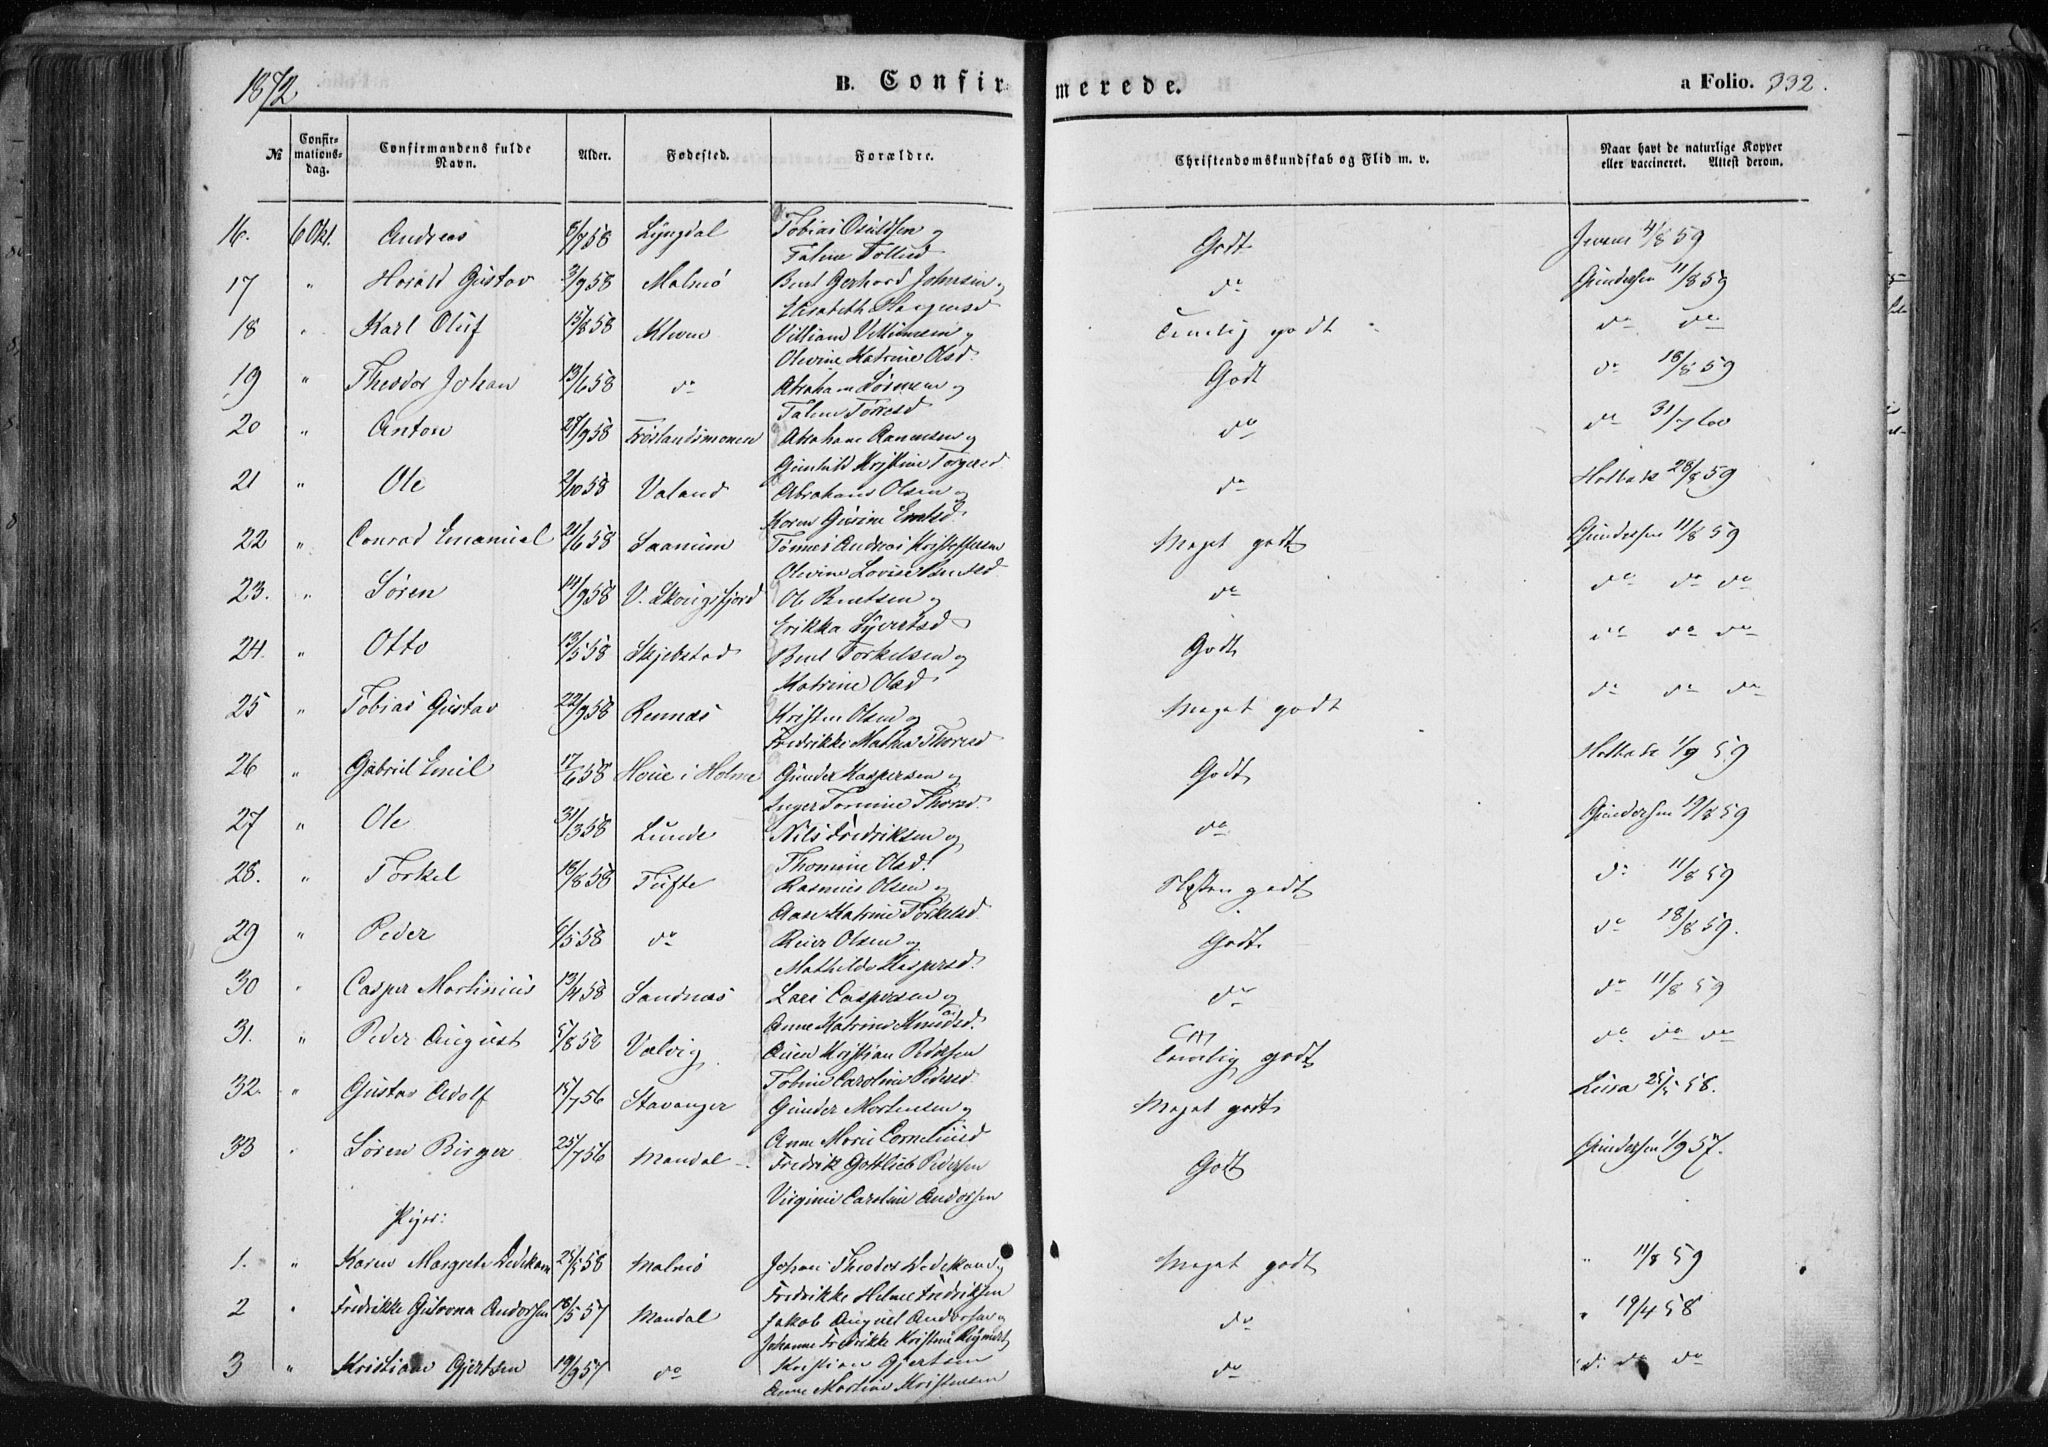 1872
B. Confirmerede.
a Folio. 332.
№
Confirmationsdag.
Confirmandens fulde Navn.
Alder.
Fødested.
Forældre.
Christendomskundskab og Flid m. v.
Naar havt de naturlige Kopper eller vaccineret. Attest derom.
16. 6 Okt. Andreas 5/7 58 Lyngdal Tobias Osuldsen og Godt 4/8 59
Talene
17 " Harald Gustav 3/9 58 Malmö Bent Gerhard Johnsen og do Gundersen 11/8 59
Elisabeth
18 " Karl Oluf 15/8 58 Kleven Villiam Villumsen og Temelig godt do do
Olevine Katrine Olsd.
19 " Theodor Johan 13/6 58 do Abraham og Godt do 18/8 59
Talene Torresd
20 " Anton 27/9 58 Frøslandsmonen Abraham og do do 31/7 60
Gunhild Kristine Torgersd
21 " Ole 2/10 58 Valand Abraham Olsen og do Holbæk 28/8 59
Karen Gurine
22 " Conrad Emanuel 21/6 58 Saanum Tønnes Andreas Kristoffersen Meget godt Gundersen 11/8 59
Olevine Lovise Bentsd.
23. " Søren 14/9 58 V. Skongsfjord Ole Bentsen og do do do do
Erikka Syvertsd
24. " Otto 13/5 58 Skjebstad Bent Torkelsen og Godt do do do
Katrine Olsd
25 " Tobias Gustav 22/9 58 Rennæs Kristen Olsen og Meget godt do do do
Fredrikke Mathea Thorsd
26 " Gabriel Emil 17/6 58 Houe i Holme Gunder Kaspersen og Godt Holbæk 1/9 59
Inger Tomine Thorsd.
27 " Ole 31/3 58 Lunde Nils Fredriksen og do Gundersen 19/8 59
Thomine Olsd.
28. " Torkel 18/8 58 Tufte Rasmus Olsen og Næsten godt do 11/8 59
Aase Katrine Torkelsd
29 " Peder 6/5 58 do Reier Olsen og Godt do 18/8 59.
Mathilde Kaspersd.
30 " Casper Martinius 13/4 58 Sandnæs Lars Caspersen og do do 11/8 59
Anne Katrine Knudsd.
31. " Peder August 5/8 58 Valvig Kristian Pedersen Temelig godt do do do
Tobine Caroline Pedersd.
32. " Gustav Adolf 15/7 56 Stavanger Gunder Mortensen og Meget godt 25/5 58.
Anne Marie Corneliusd
33 " Søren Birger 25/7 56 Mandal Fredrik Gottlieb Pedersen Godt Gundersen 1/9 57.
Virginie Caroline Andersen
Piger:
1. " Karen Margrete Dedekam 25/5 58 Malmö Johan Theodor Dedekam og Meget godt " 11/8 59
Fredrikke Helene Fredriksen
2 " Fredrikke Gustava Andorsen 18/5 57 Mandal Jakob August Andorsen og do " 19/4 58
Johanne Fredrikke Kristine
3 " Kristiane Gjertsen 19/9 57 do Kristian Gjertsen do do do do
Anne Martine Kristensen